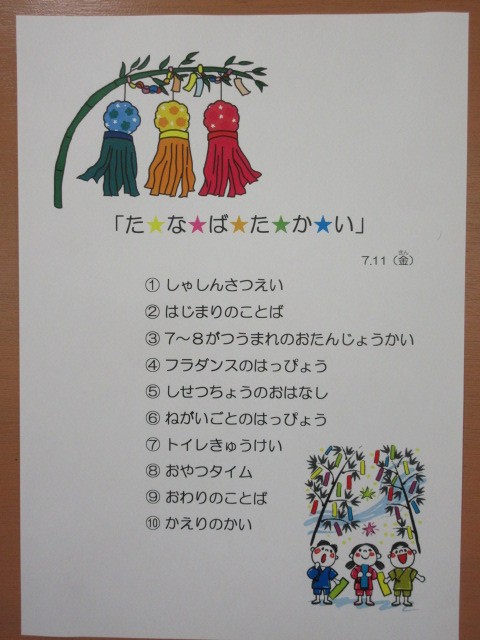 「た★な★ば★た★か★い」
7.11（金）
きん
① しゃしんさつえい
② はじまりのことば
③ 7～8がつうまれのおたんじょうかい
④ フラダンスのはっぴょう
⑤ しせつちょうのおはなし
⑥ ねがいごとのはっぴょう
⑦ トイレきゅうけい
⑧ おやつタイム
⑨ おわりのことば
⑩ かえりのかい